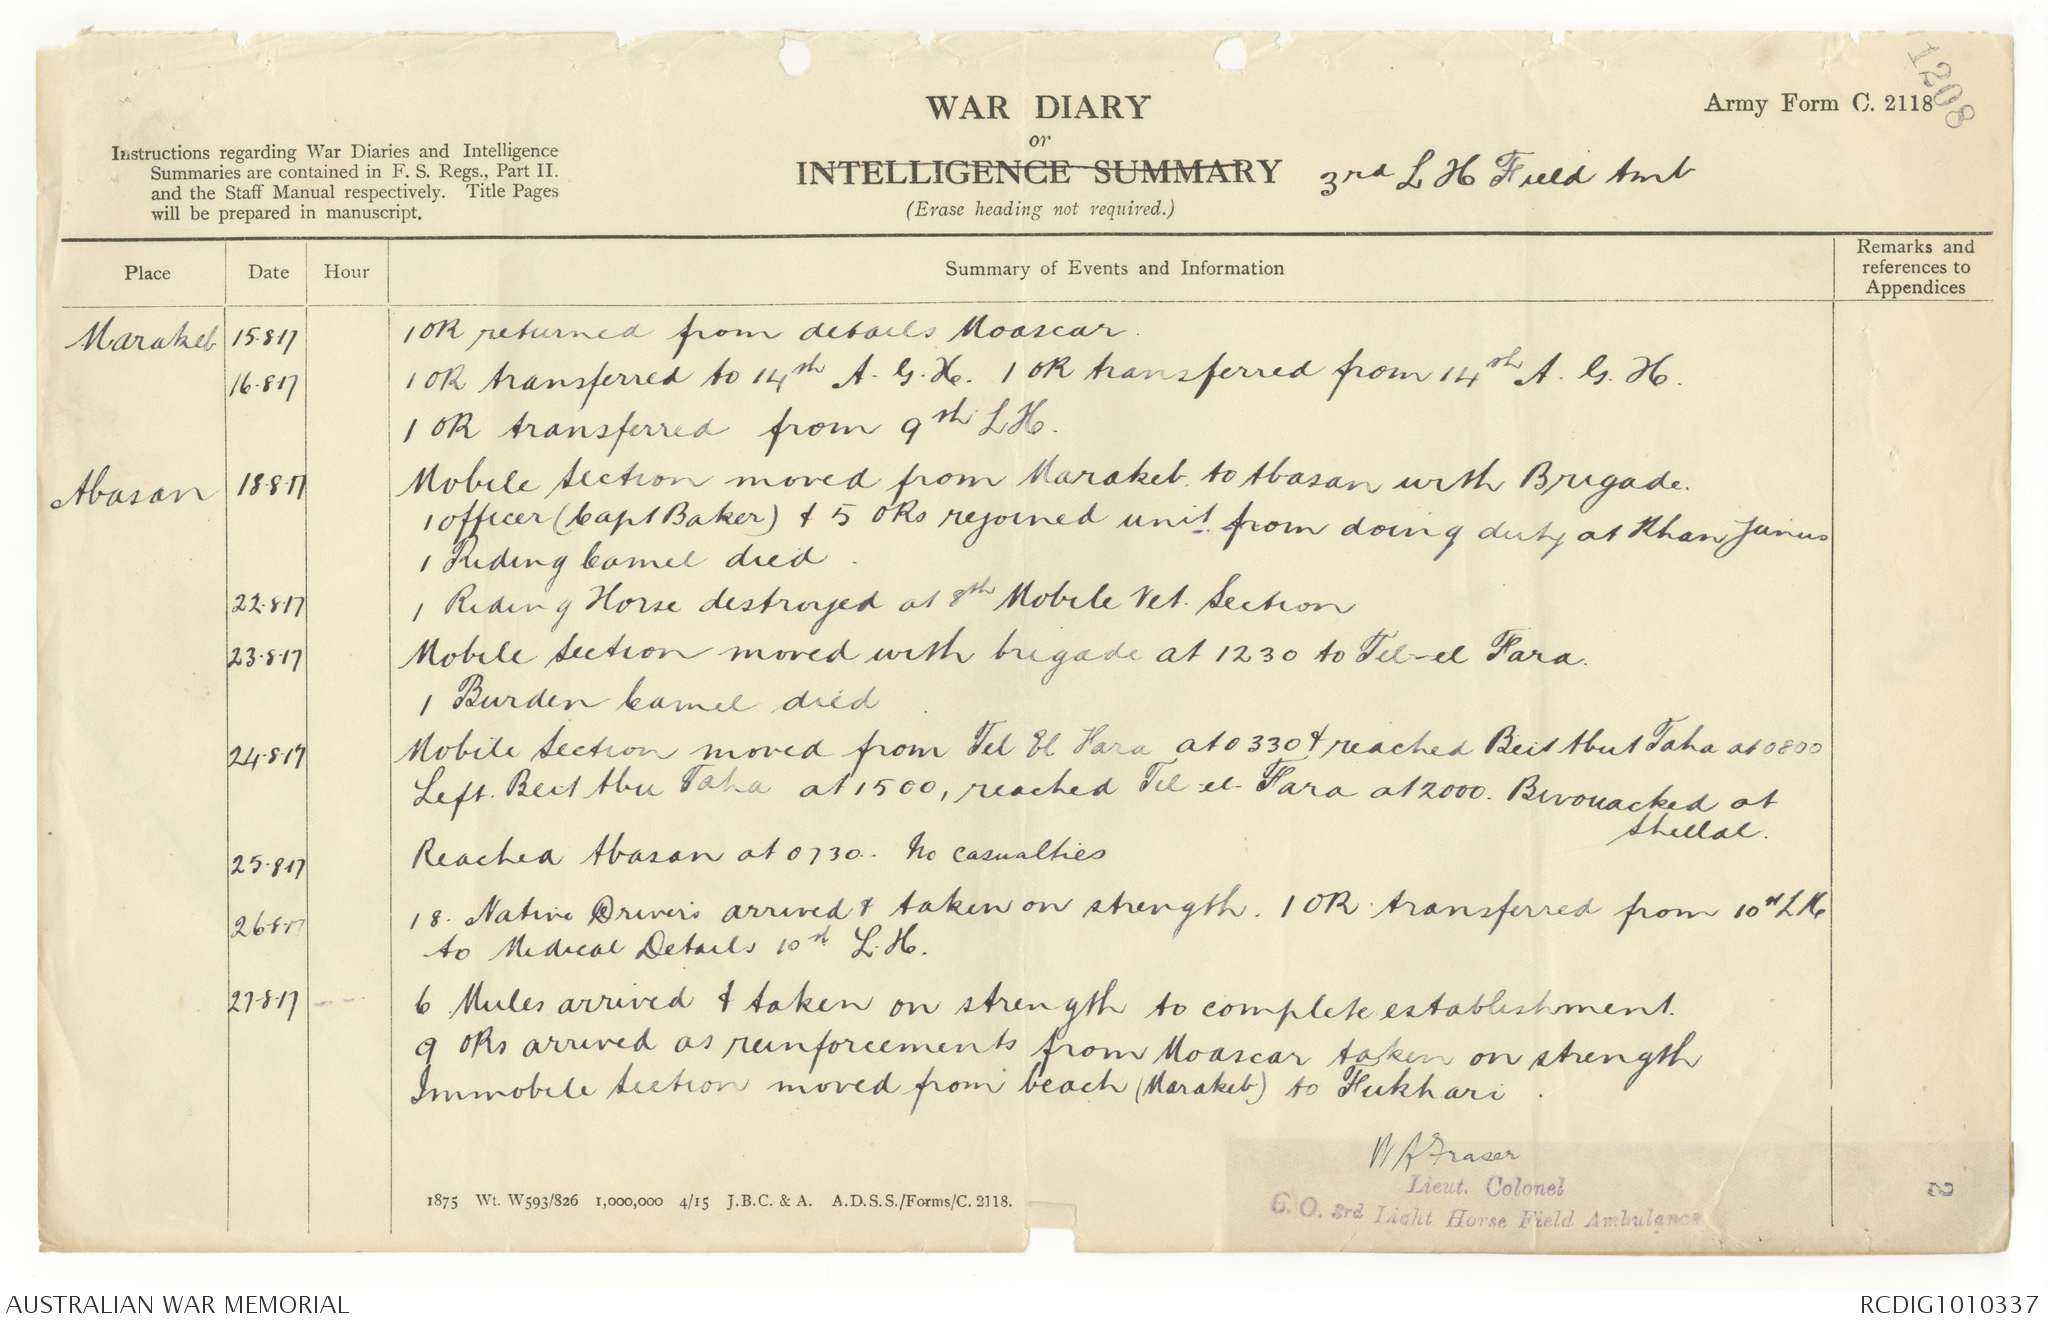 1208
WAR DIARY
or
INTELLIGENCE SUMMARY
(Erase heading not required.)
3rd L H Field Amb
Army Form C. 2118
Instructions regarding War Diaries and Intelligence
Summaries are contained in F. S. Regs., Part II.
and the Staff Manual respectively. Title Pages
will be prepared in manuscript.
Place Date Hour Summary of Events and Information Remarks and
references to
Appendices
Marakeb 15.8.17 1 OR returned from details Moascar.
16.8.17 1 OR transferred to 14th A. G. H. 1 OR transferred from 14th A. G. H.
1 OR transferred from 9th L H.
Abasan 18.8.17 Mobile Section moved from Marakeb to Abasan with Brigade.
1 officer (Capt Baker) & 5 ORs rejoined unit from doing duty at Khan Junus
1 Riding Camel died.
22.8.17 1 Riding Horse destroyed at 8th Mobile Vet. Section
23.8.17 Mobile Section moved with brigade at 1230 to Tel-el Fara.
1 Burden Camel died
24.8.17 Mobile Section moved from Tel El Fara at 0330 & reached Beit Abu Taha at 0800
Left Beit Abu Taha at 1500, reached Tel-el-Fara at 2000. Bivouacked at
Shellal.
25.8.17 Reached Abasan at 0730. No casualties
26.8.17 18. Native Drivers arrived & taken on strength. 1 OR transferred from 10th L H
to Medical Details 10th L. H.
27.8.17 6 Mules arrived & taken on strength to complete establishment.
9 ORs arrived as reinforcements from Moascar taken on strength
Immobile Section moved from beach (Marakeb) to Fukhari.
W A Fraser
Lieut. Colonel
C. O. 3rd Light Horse Field Ambulance
1875 Wt. W593/826 1,000,000 4/15 J.B.C. & A. A.D.S.S./Forms/C. 2118.
AUSTRALIAN WAR MEMORIAL
RCDIG1010337